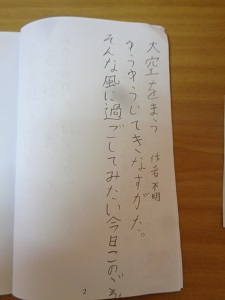 大空をまう
作者不明
ゆうゆうしてきなすがた。
そんな風に過ごしてみたい今日このごろ。
2